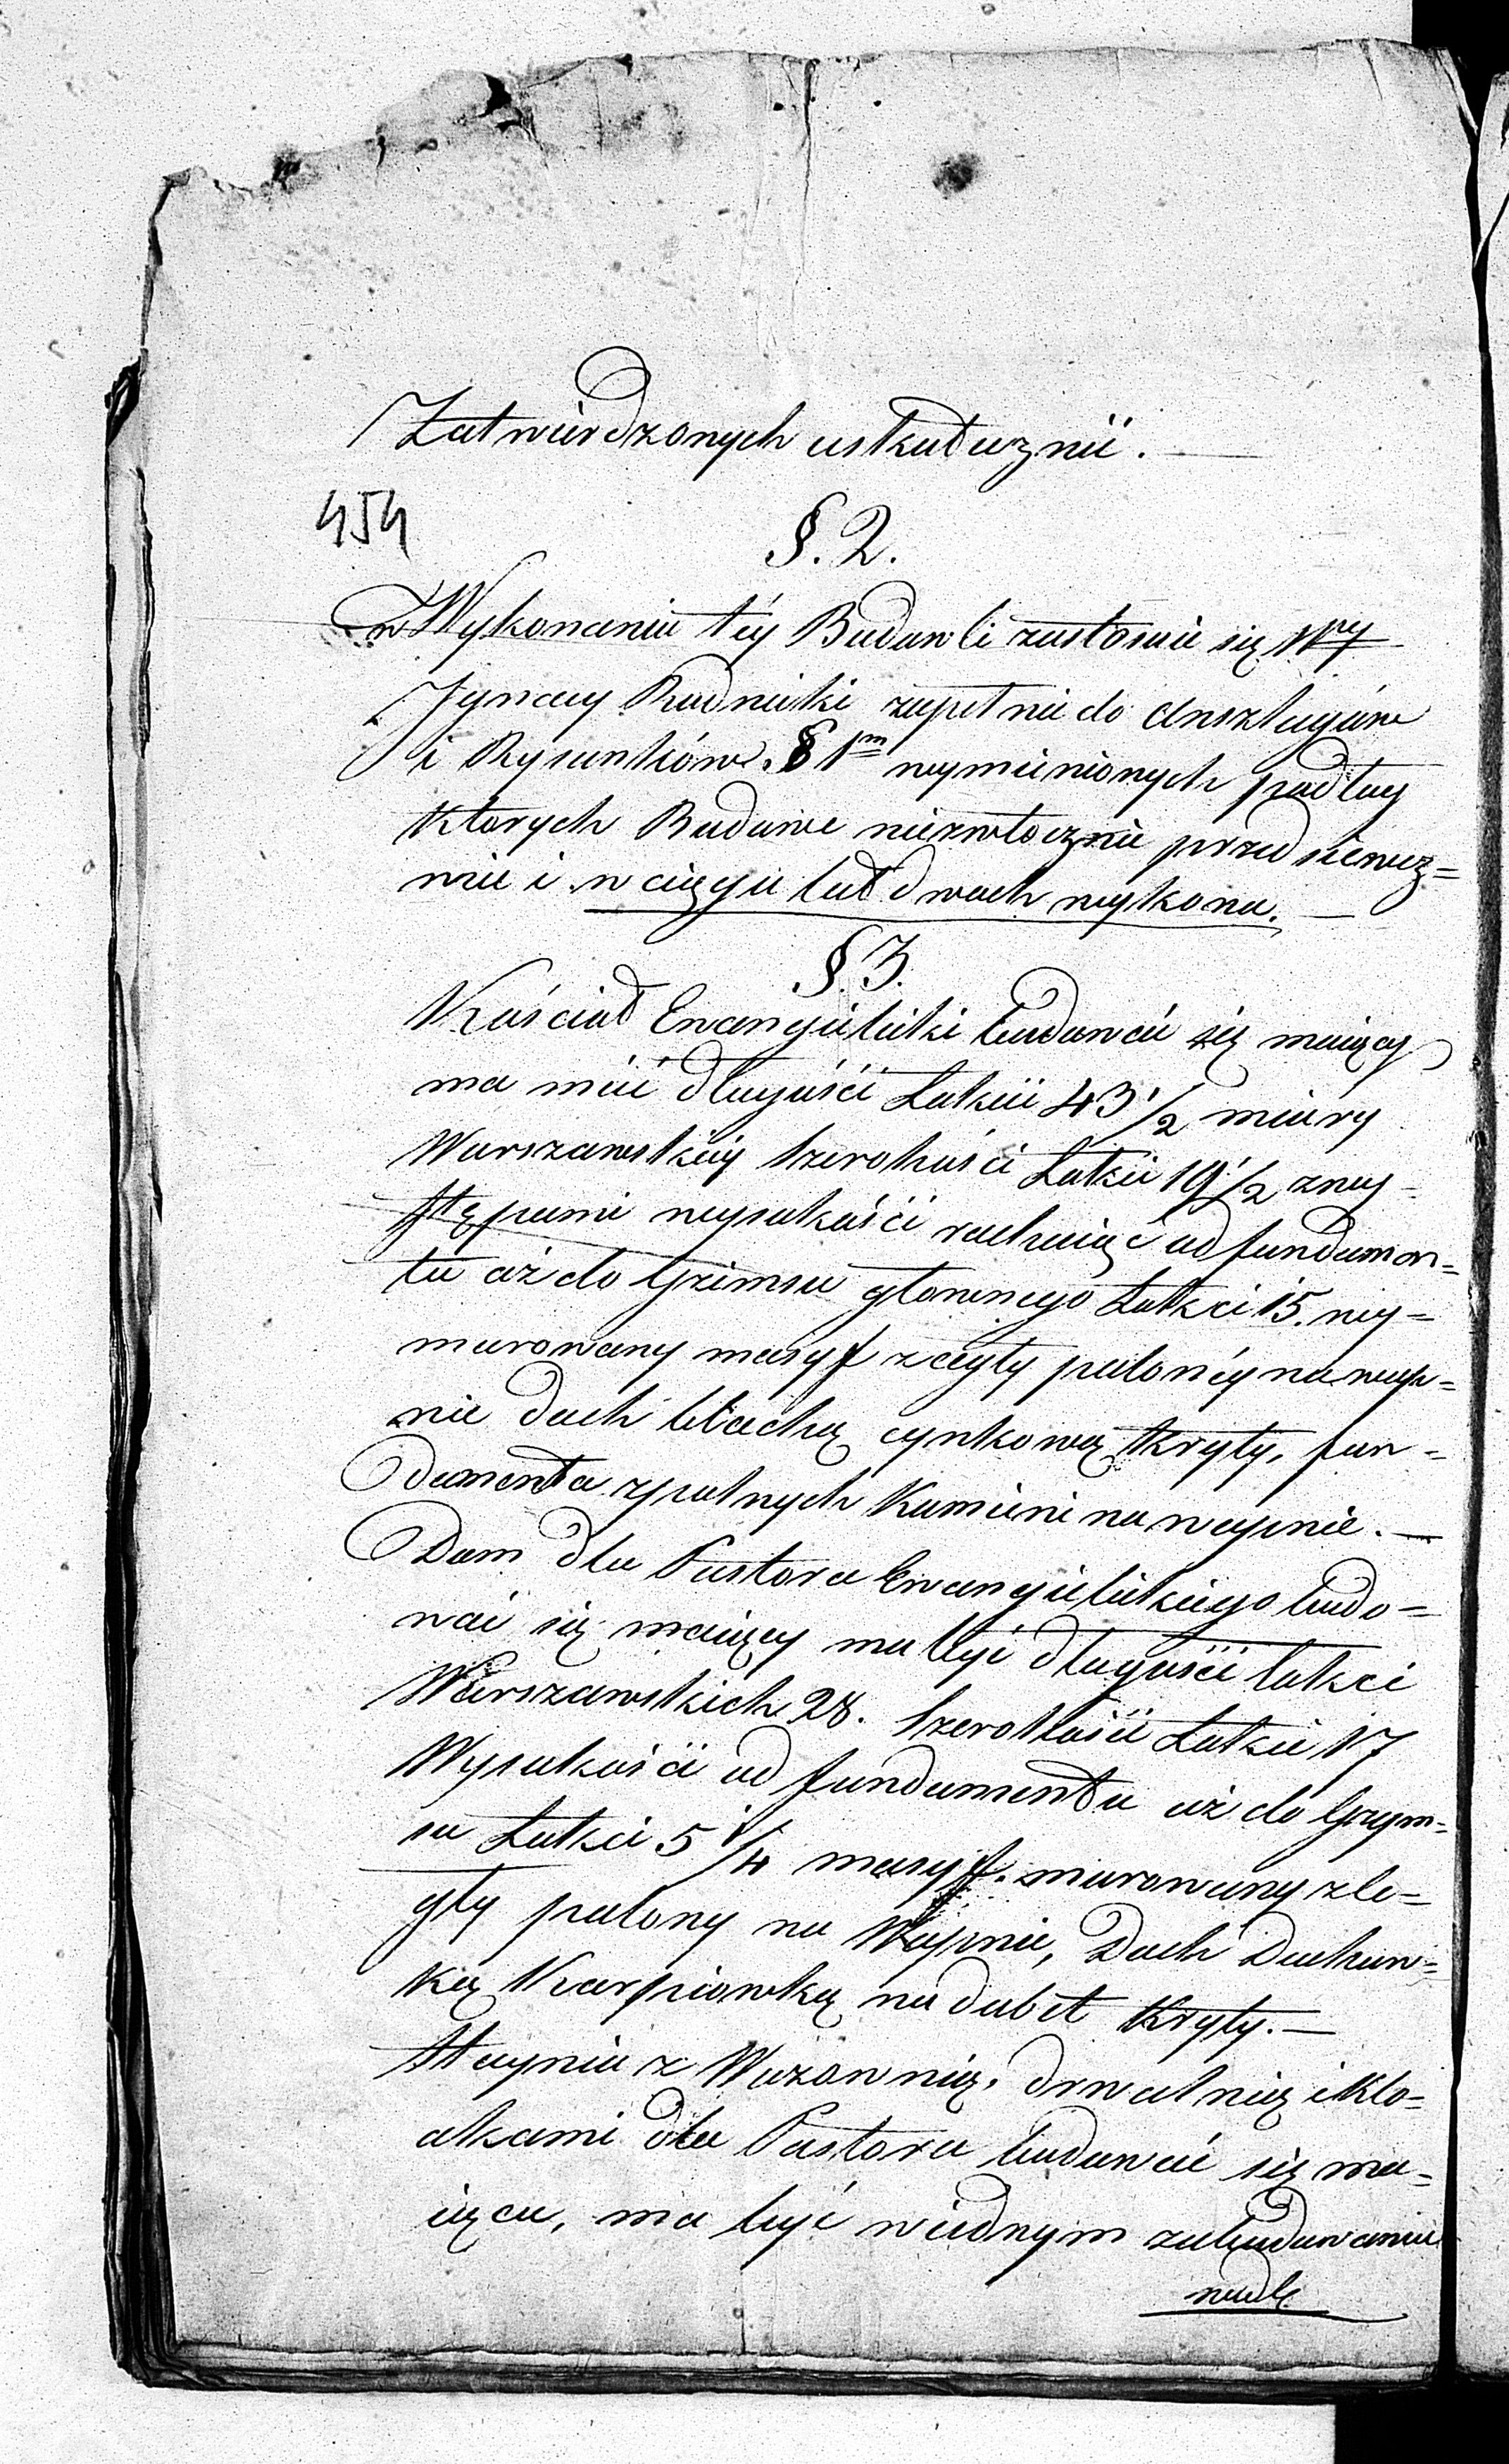 Zatwierdzonych uskutecznić.
454
§. 2.
w Wykonaniu téy Budowli zastosuie się Wny
Jgnacy Rudnicki zupełnie do anszlagów
i Rysunków § 1m wymienionych podług
których Budowe niezwłocznie przedsieweź=
mie i w ciągu lat dwóch wykona.
§. 3.
Kościoł Ewangielicki budować się maiący
ma mieć długości Łokcii 43 1/2 miary
Warszawskiéy szerokości Łokci 19 1/2 z wy=
stępami wysokości rachuiąc od fundamen=
tu aż do Gzimsu głownego Łokci 15. wy=
murowany masyf z cegły paloney na wap=
nie dach blachą cynkową kryty, fun=
damenta z polnych Kamieni na wapnie.—
Dom dla Pastora Ewangielickiego budo=
wać się maiący ma być długości łokci
Warszawskich 28. szerokości Łokci 17
Wysokości od fundamentu aż do Gzym=
su Łokci 5 1/4 masyf. murowany z ce=
gły palony na Wapnie, Dach Dachów=
ką Karpiowką na dubelt kryty.—
Staynia z Wozownią, drwalnią i Klo=
akami dla Pastora budować się ma=
iąca, ma być w iednym zabudowaniu
wedle